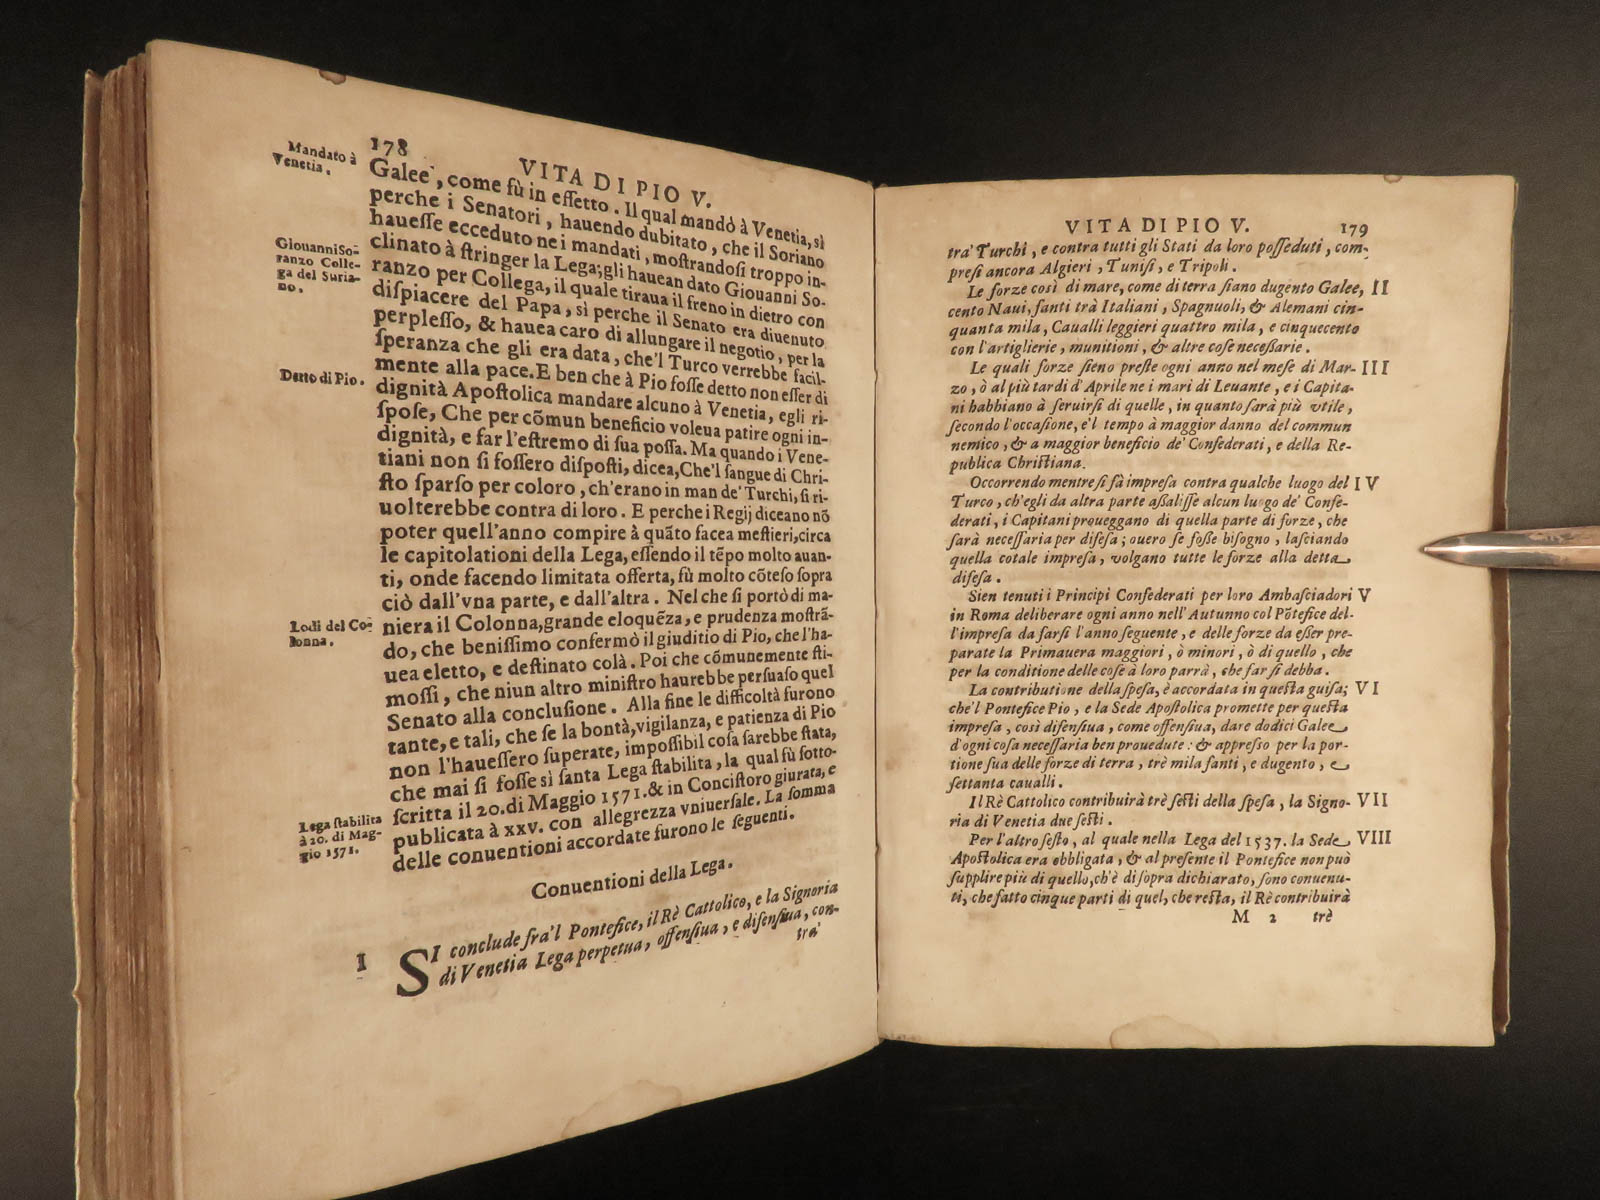 178
VITA DI PIO V.
Mandato à
Venetia.
Galee, come fù in effetto. Il qual mandò à Venetia, sì
perche i Senatori, hauendo dubitato, che il Soriano
hauesse ecceduto ne i mandati, mostrandosi troppo in-
clinato à stringer la Lega; gli hauean dato Giouanni So-
Giouanni So-
ranzo Colle-
ga del Suria-
no.
ranzo per Collega, il quale tiraua il freno in dietro con
dispiacere del Papa, sì perche il Senato era diuenuto
perplesso, & hauea caro di allungare il negotio, per la
speranza che gli era data, che'l Turco verrebbe facil-
mente alla pace. E ben che à Pio fosse detto non esser di
Detto di Pio.
dignità Apostolica mandare alcuno à Venetia, egli ri-
spose, Che per cōmun beneficio voleua patire ogni in-
dignità, e far l'estremo di sua possa. Ma quando i Vene-
tiani non si fossero disposti, dicea, Che'l sangue di Chri-
sto sparso per coloro, ch'erano in man de' Turchi, si ri-
uolterebbe contra di loro. E perche i Regij diceano nō
poter quell'anno compire à quāto facea mestieri, circa
le capitolationi della Lega, essendo il tēpo molto auan-
ti, onde facendo limitata offerta, fù molto cōteso sopra
ciò dall'vna parte, e dall'altra. Nel che si portò di ma-
Lodi del Co-
lonna.
niera il Colonna, grande eloquēza, e prudenza mostrā-
do, che benissimo confermò il giuditio di Pio, che l'ha-
uea eletto, e destinato colà. Poi che cōmunemente sti-
mossi, che niun altro ministro haurebbe persuaso quel
Senato alla conclusione. Alla fine le difficoltà furono
tante, e tali, che se la bontà, vigilanza, e patienza di Pio
non l'hauessero superate, impossibil cosa sarebbe stata,
che mai si fosse sì santa Lega stabilita, la qual fù sotto-
Lega stabilita
à 20. di Mag-
gio 1571.
scritta il 20. di Maggio 1571. & in Concistoro giurata, e
publicata à xxv. con allegrezza vniuersale. La somma
delle conuentioni accordate furono le seguenti.
Conuentioni della Lega.
I
SI conclude fra'l Pontefice, il Rè Cattolico, e la Signoria
di Venetia Lega perpetua, offensiua, e difensiua, con-
tra'
VITA DI PIO V.
179
tra' Turchi, e contra tutti gli Stati da loro posseduti, com-
presi ancora Algieri, Tunisi, e Tripoli.
Le forze così di mare, come di terra siano dugento Galee, II
cento Naui, fanti trà Italiani, Spagnuoli, & Alemani cin-
quanta mila, Caualli leggieri quattro mila, e cinquecento
con l'artiglierie, munitioni, & altre cose necessarie.
Le quali forze sieno preste ogni anno nel mese di Mar- III
zo, ò al più tardi d'Aprile ne i mari di Leuante, e i Capita-
ni habbiano à seruirsi di quelle, in quanto sarà più vtile,
secondo l'occasione, e'l tempo à maggior danno del commun
nemico, & a maggior beneficio de' Confederati, e della Re-
publica Christiana.
Occorrendo mentre si fà impresa contra qualche luogo del IV
Turco, ch'egli da altra parte assalisse alcun luogo de' Confe-
derati, i Capitani proueggano di quella parte di forze, che
sarà necessaria per difesa; ouero se fosse bisogno, lasciando
quella cotale impresa, volgano tutte le forze alla detta
difesa.
Sien tenuti i Principi Confederati per loro Ambasciadori V
in Roma deliberare ogni anno nell'Autunno col Pōtefice del-
l'impresa da farsi l'anno seguente, e delle forze da esser pre-
parate la Primauera maggiori, ò minori, ò di quello, che
per la conditione delle cose à loro parrà, che far si debba.
La contributione della spesa, è accordata in questa guisa; VI
che'l Pontefice Pio, e la Sede Apostolica promette per questa
impresa, così difensiua, come offensiua, dare dodici Galee
d'ogni cosa necessaria ben prouedute: & appresso per la por-
tione sua delle forze di terra, trè mila fanti, e dugento, e
settanta caualli.
Il Rè Cattolico contribuirà trè sesti della spesa, la Signo- VII
ria di Venetia due sesti.
Per l'altro sesto, al quale nella Lega del 1537. la Sede VIII
Apostolica era obbligata, & al presente il Pontefice non può
supplire più di quello, ch'è di sopra dichiarato, sono conuenu-
ti, che fatto cinque parti di quel, che resta, il Rè contribuirà
M 2 trè